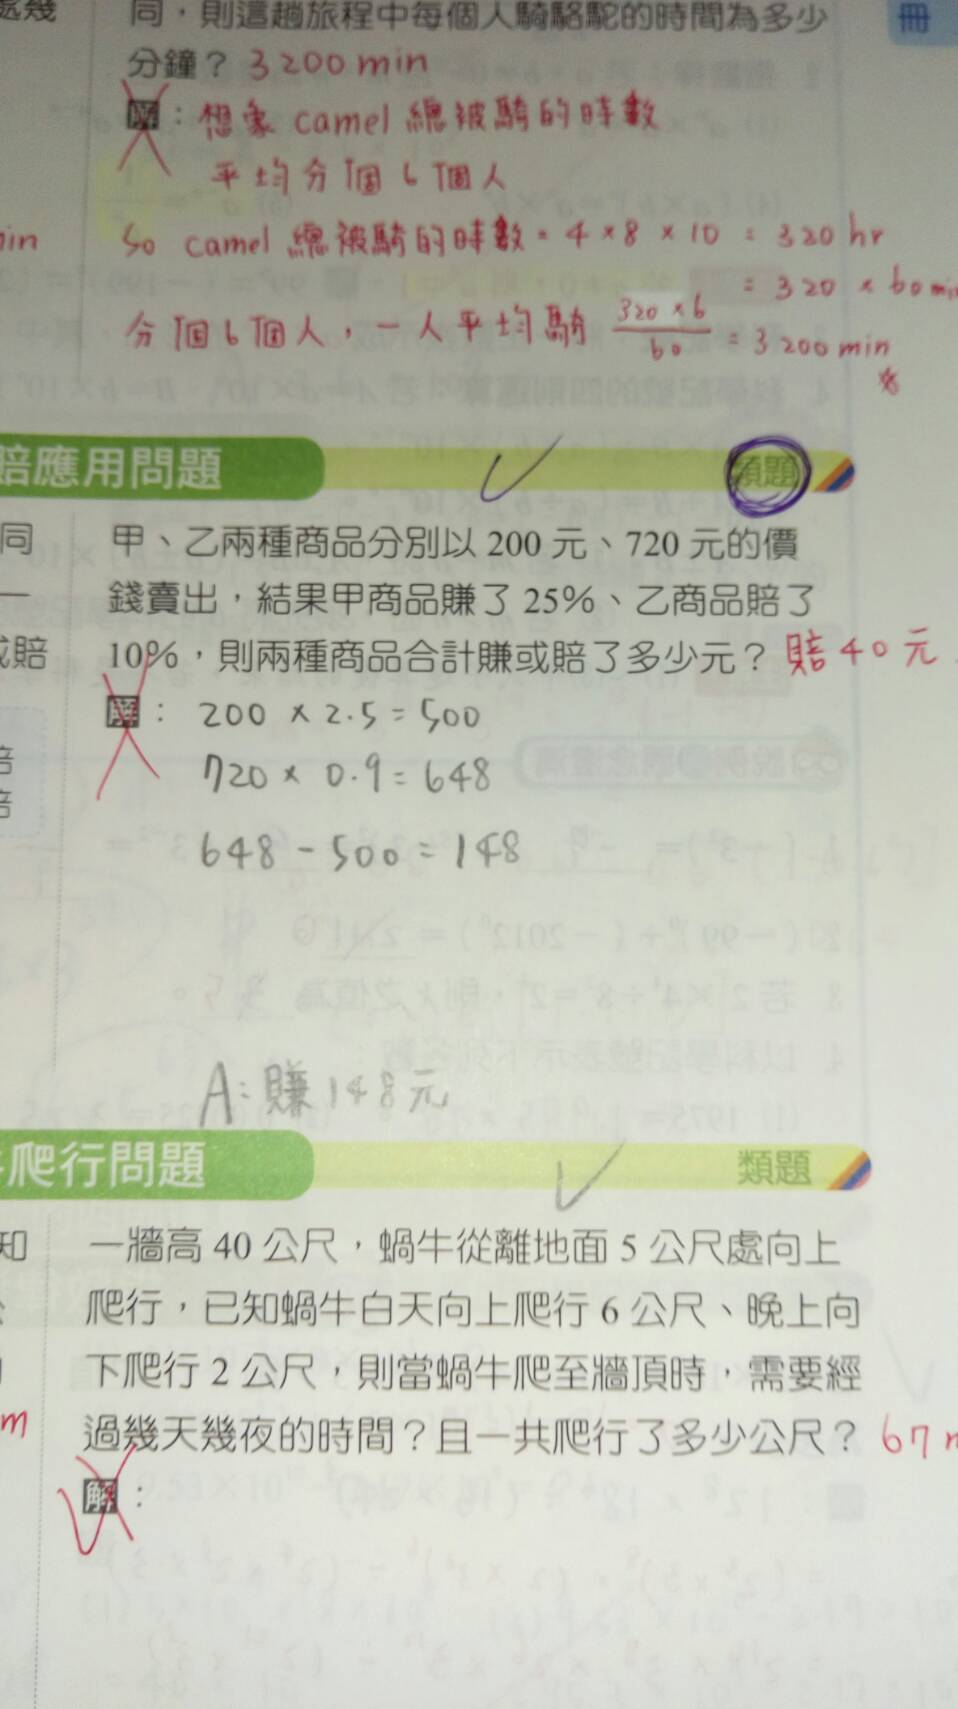 處幾
冊
同，則這趟旅程中每個人騎駱駝的時間為多少
分鐘？3200 min
解：想象 camel 總被騎的時數
平均分個 6 個人
in
So camel 總被騎的時數 = 4 × 8 × 10 = 320 hr
= 320 × 60 min
分個 6 個人，一人平均騎 320 × 6 / 60 = 3200 min
賠應用問題
類題
同
甲、乙兩種商品分別以 200 元、720 元的價
一
錢賣出，結果甲商品賺了 25%、乙商品賠了
或賠
10%，則兩種商品合計賺或賠了多少元？賠 40 元
解： 200 × 2.5 = 500
賠
720 × 0.9 = 648
賠
648 - 500 = 148
A: 賺 148 元
爬行問題
類題
知
一牆高 40 公尺，蝸牛從離地面 5 公尺處向上
爬行，已知蝸牛白天向上爬行 6 公尺、晚上向
下爬行 2 公尺，則當蝸牛爬至牆頂時，需要經
m
過幾天幾夜的時間？且一共爬行了多少公尺？67
解：